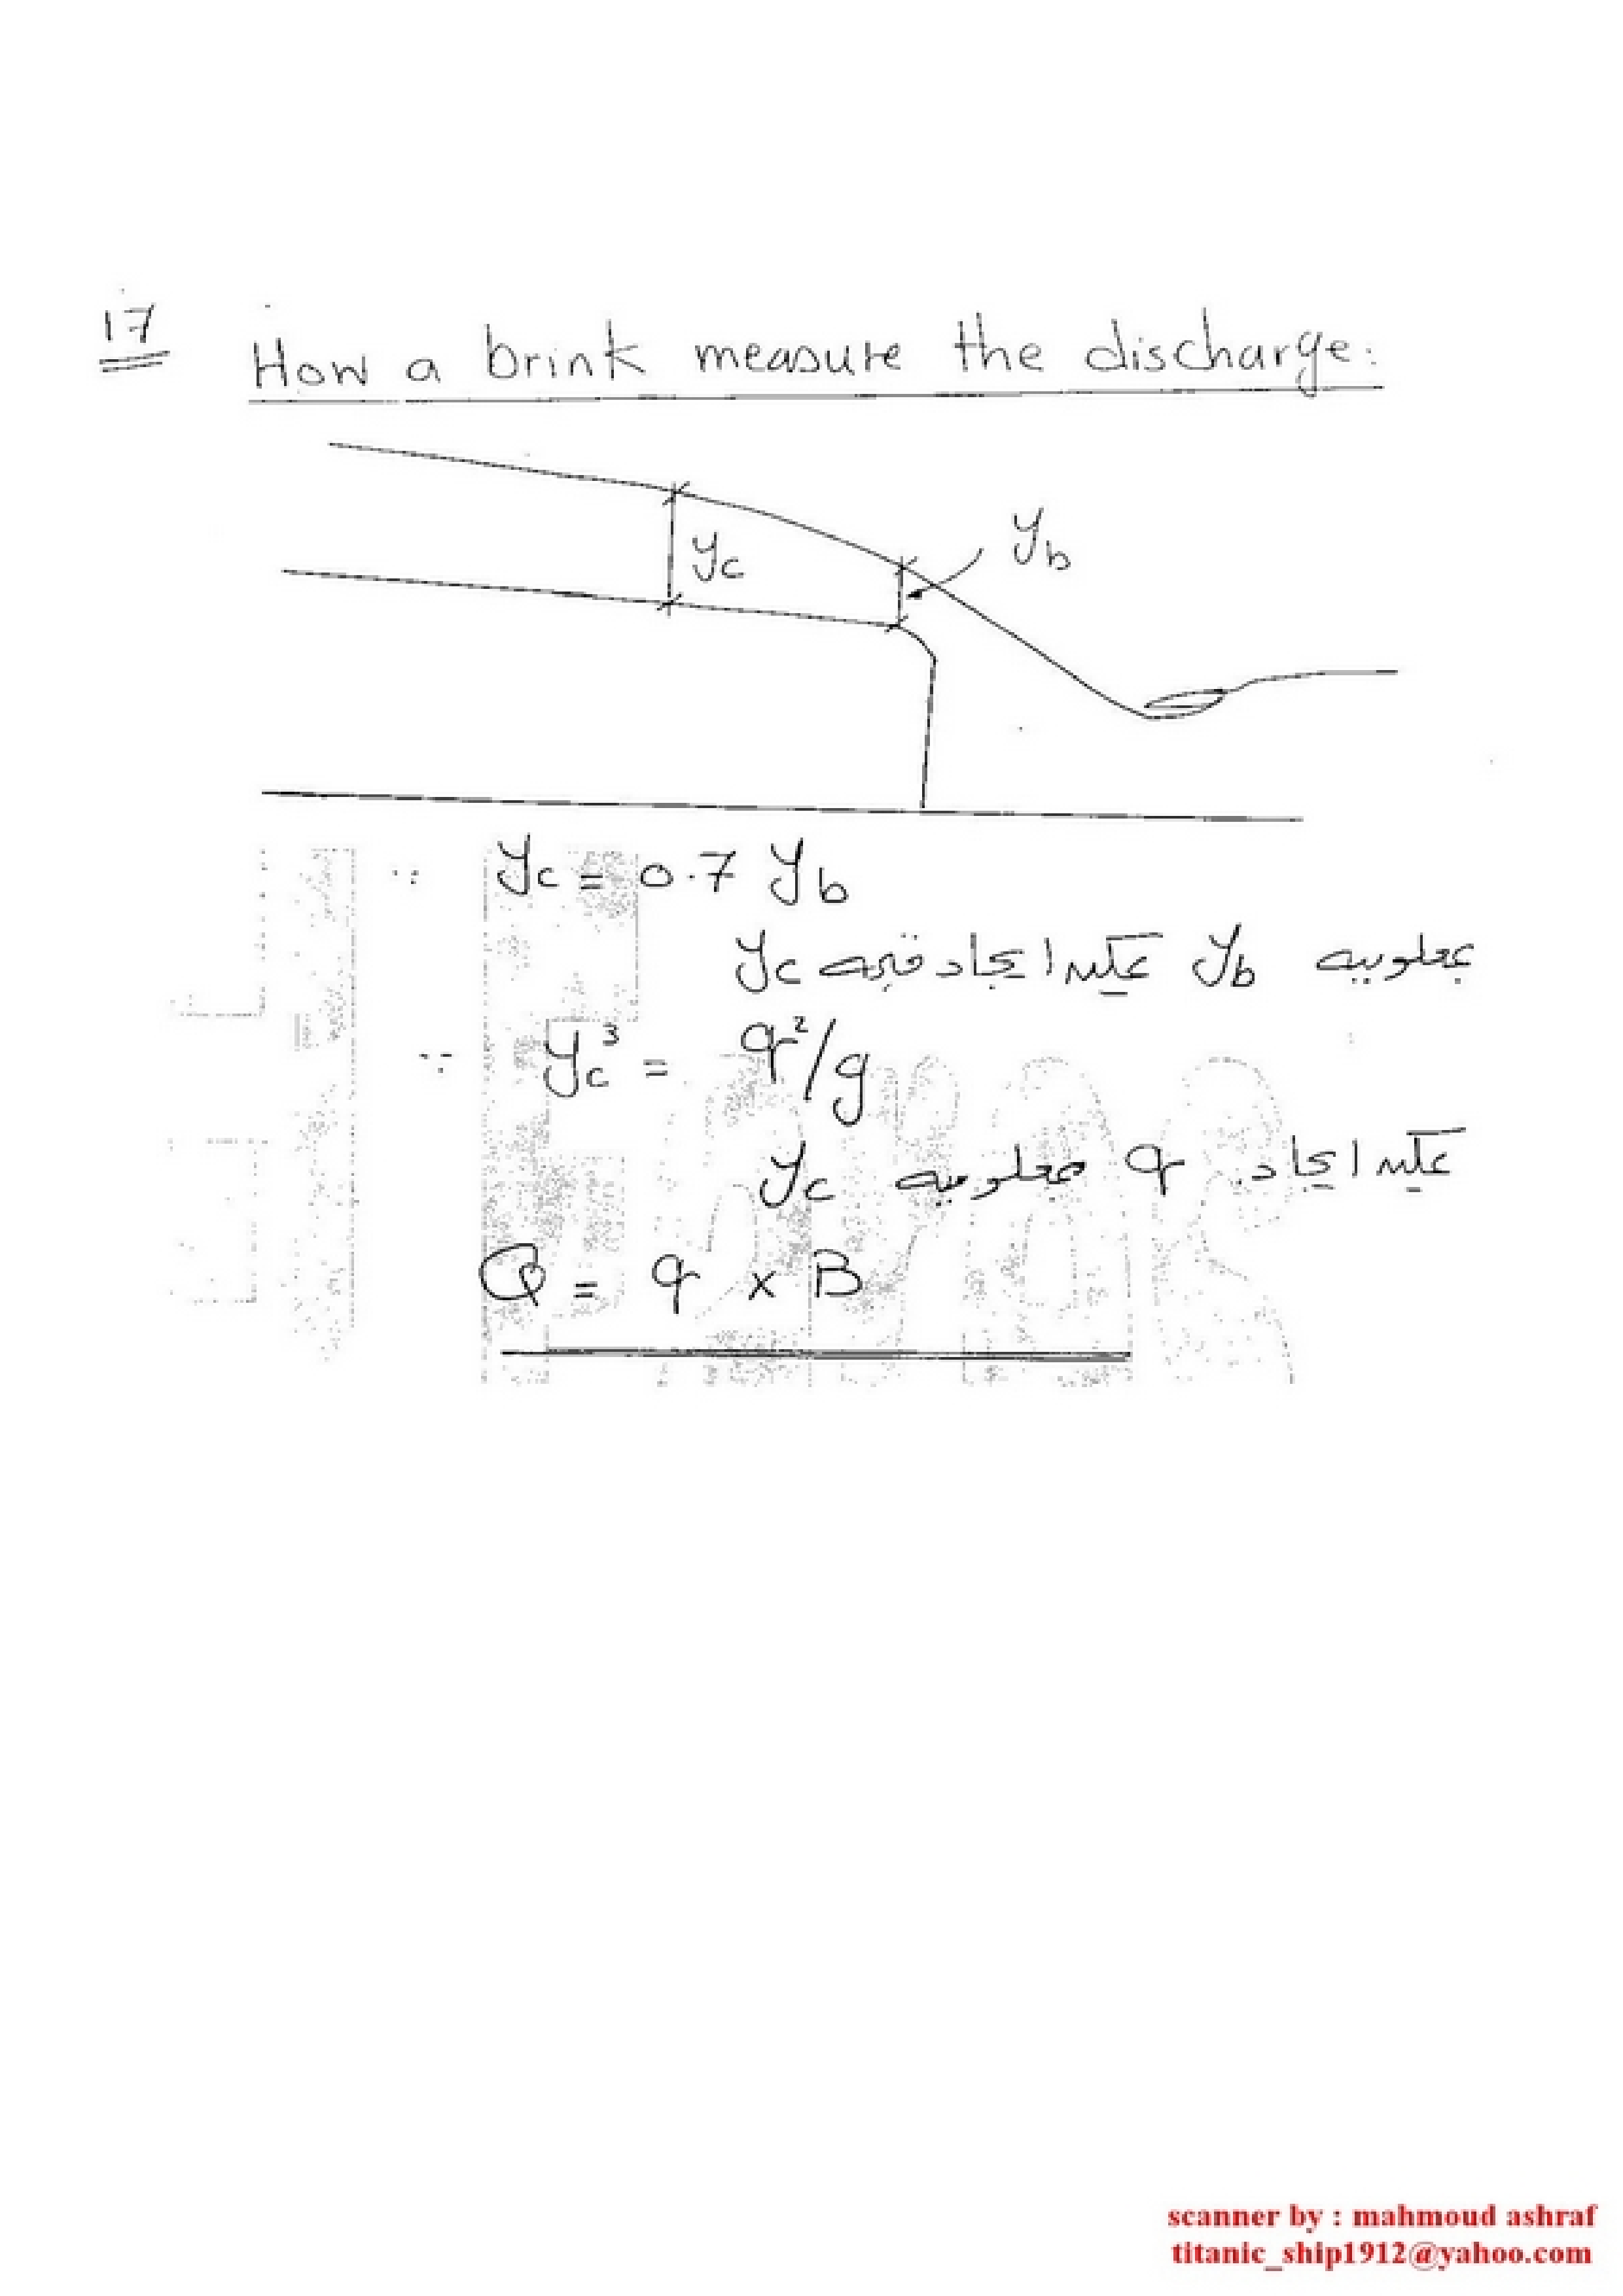 17
How a brink measure the discharge:
yc
yb
∵ yc = 0.7 yb
بمعلومية yb يمكن ايجاد قيمة yc
∵ yc³ = q²/g
يمكن ايجاد q بمعلومية yc
Q = q x B
scanner by : mahmoud ashraf
titanic_ship1912@yahoo.com